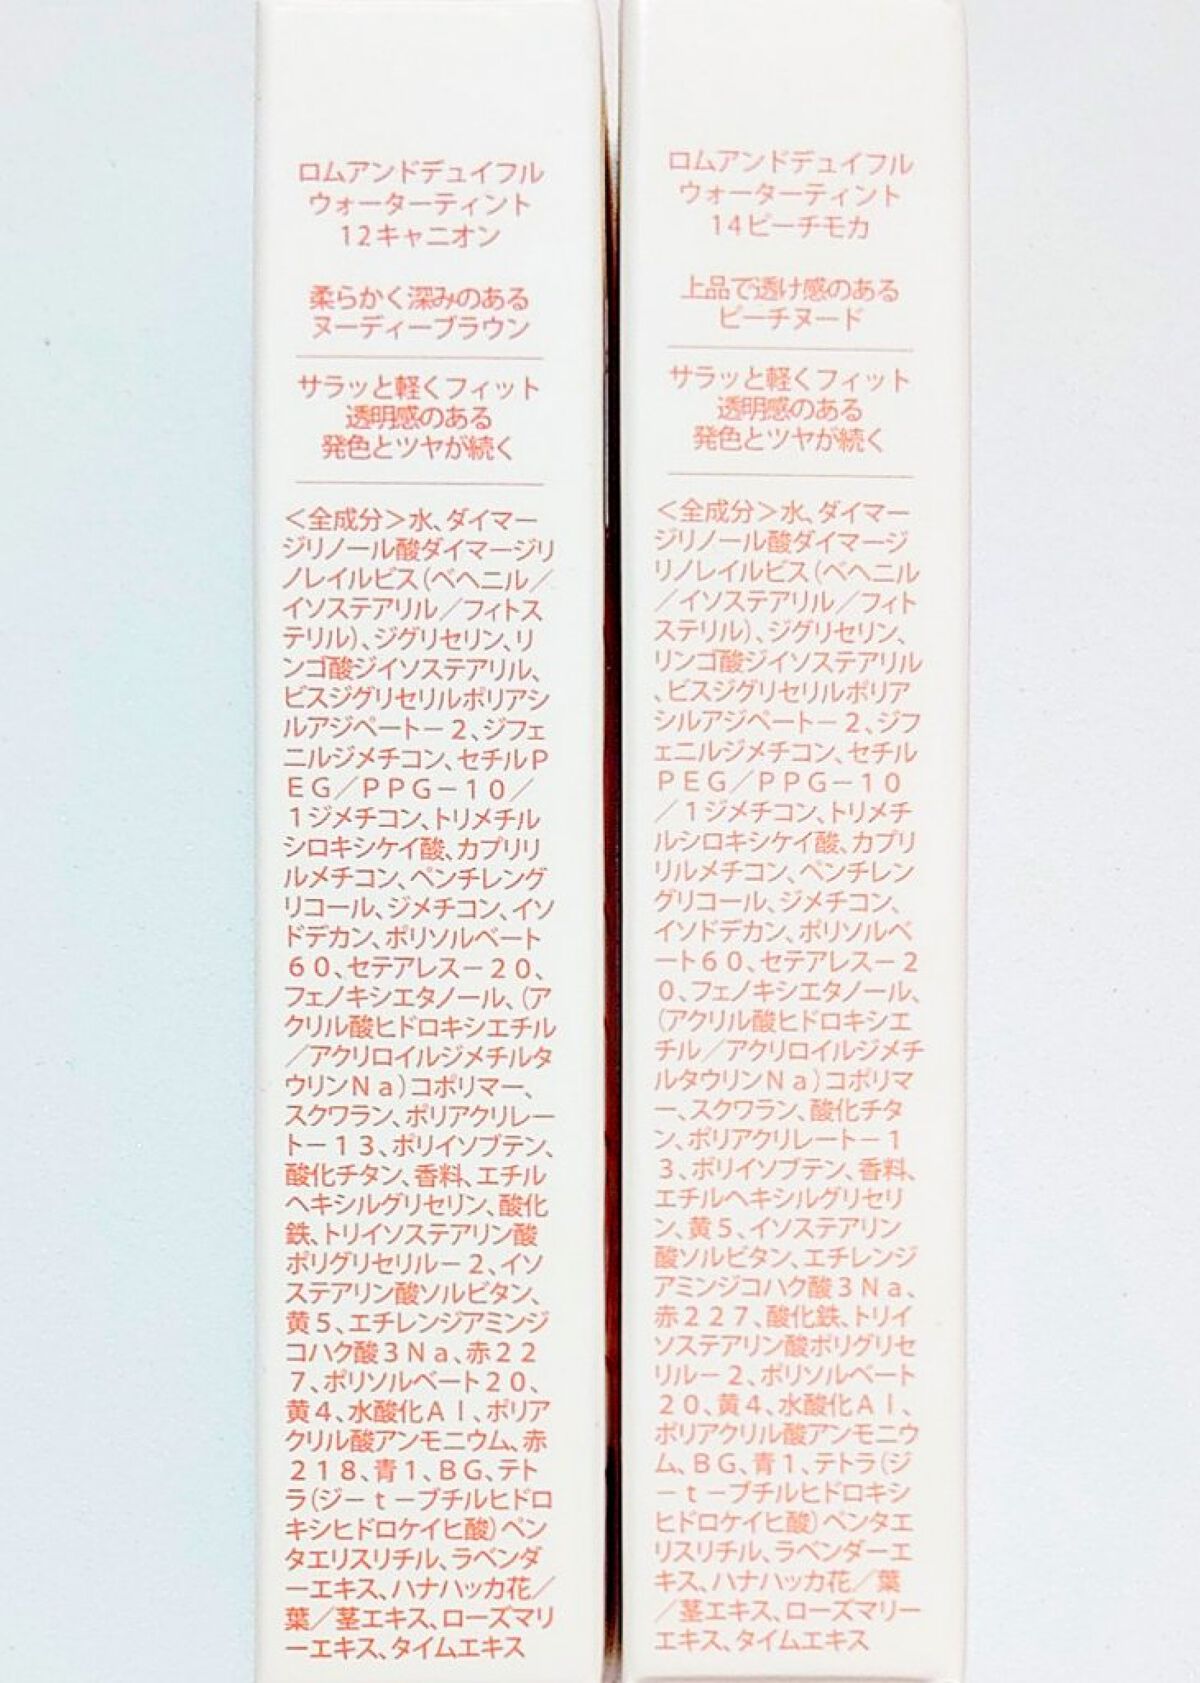 ロムアンドデュイフル
ウォーターティント
12キャニオン
柔らかく深みのある
ヌーディーブラウン
サラッと軽くフィット
透明感のある
発色とツヤが続く
＜全成分＞水、ダイマー
ジリノール酸ダイマージリ
ノレイルビス（ベヘニル／
イソステアリル／フィトス
テリル）、ジグリセリン、リ
ンゴ酸ジイソステアリル、
ビスジグリセリルポリアシ
ルアジペート－２、ジフェ
ニルジメチコン、セチルＰ
ＥＧ／ＰＰＧ－１０／
１ジメチコン、トリメチル
シロキシケイ酸、カプリリ
ルメチコン、ペンチレング
リコール、ジメチコン、イソ
ドデカン、ポリソルベート
６０、セテアレス－２０、
フェノキシエタノール、（ア
クリル酸ヒドロキシエチル
／アクリロイルジメチルタ
ウリンＮａ）コポリマー、
スクワラン、ポリアクリレー
ト－１３、ポリイソブテン、
酸化チタン、香料、エチル
ヘキシルグリセリン、酸化
鉄、トリイソステアリン酸
ポリグリセリル－２、イソ
ステアリン酸ソルビタン、
黄５、エチレンジアミンジ
コハク酸３Ｎａ、赤２２
７、ポリソルベート２０、
黄４、水酸化Ａｌ、ポリア
クリル酸アンモニウム、赤
２１８、青１、ＢＧ、テト
ラ（ジ－ｔ－ブチルヒドロ
キシヒドロケイヒ酸）ペン
タエリスリチル、ラベンダ
ーエキス、ハナハッカ花／
葉／茎エキス、ローズマリ
ーエキス、タイムエキス
ロムアンドデュイフル
ウォーターティント
14ピーチモカ
上品で透け感のある
ピーチヌード
サラッと軽くフィット
透明感のある
発色とツヤが続く
＜全成分＞水、ダイマー
ジリノール酸ダイマージ
リノレイルビス（ベヘニル
／イソステアリル／フィト
ステリル）、ジグリセリン、
リンゴ酸ジイソステアリル
、ビスジグリセリルポリア
シルアジペート－２、ジフ
ェニルジメチコン、セチル
ＰＥＧ／ＰＰＧ－１０
／１ジメチコン、トリメチ
ルシロキシケイ酸、カプリ
リルメチコン、ペンチレン
グリコール、ジメチコン、
イソドデカン、ポリソルベ
ート６０、セテアレス－２
０、フェノキシエタノール、
（アクリル酸ヒドロキシエ
チル／アクリロイルジメチ
ルタウリンＮａ）コポリマ
ー、スクワラン、酸化チタ
ン、ポリアクリレート－１
３、ポリイソブテン、香料、
エチルヘキシルグリセリ
ン、黄５、イソステアリン
酸ソルビタン、エチレンジ
アミンジコハク酸３Ｎａ、
赤２２７、酸化鉄、トリイ
ソステアリン酸ポリグリセ
リル－２、ポリソルベート
２０、黄４、水酸化Ａｌ、
ポリアクリル酸アンモニウ
ム、ＢＧ、青１、テトラ（ジ
－ｔ－ブチルヒドロキシ
ヒドロケイヒ酸）ペンタエ
リスリチル、ラベンダーエ
キス、ハナハッカ花／葉
／茎エキス、ローズマリー
エキス、タイムエキス